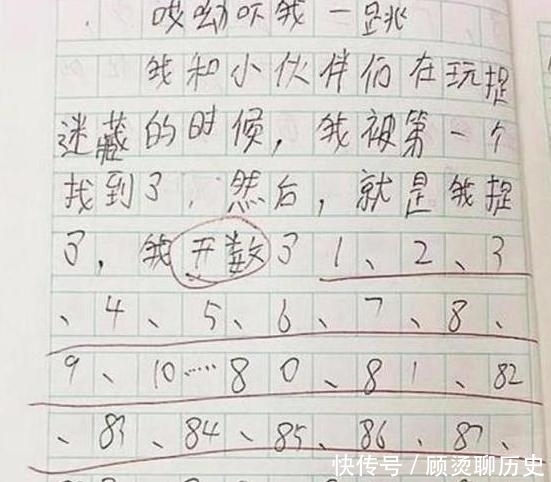 哎呦吓我一跳
我和小伙伴们在玩捉
迷藏的时候，我被第一个
找到了，然后，就是我捉
了，我开数了1、2、3
、4、5、6、7、8、
9、10……80、81、82
、83、84、85、86、87、
快传号/顾烫聊历史